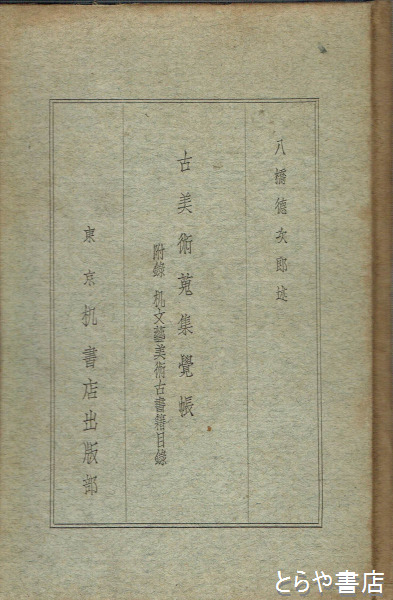 八橋德次郎述
古美術蒐集覺帳
附錄 机文藝美術古書籍目錄
東京 机書店出版部
とらや書店